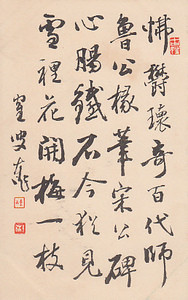 怫欝瓌奇百代師
魯公椽筆宋公碑
心腸鐵石今猶見
雪裡花開梅一枝